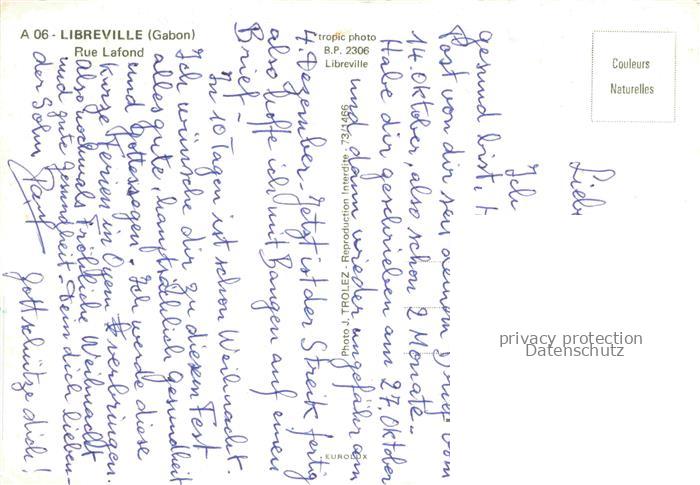 A 06 - LIBREVILLE (Gabon)
Rue Lafond
tropic photo
B.P. 2306
Libreville
Couleurs
Naturelles
Photo J. TROLEZ - Reproduction Interdite - 73/1466
EUROLUX
privacy protection
Datenschutz
Liebe
Ich
gesund bist, +
Post von dir seu deinem vom
14. Oktober, also schon 2 Monate..
Habe dir geschrieben am 27. Oktober
und dann wieder ungefähr am
4. Dezember - Jetzt ist der Streik fertig
also hoffe ich mit Bangen auf einen
Brief -
In 10 Tagen ist schon Weihnacht.
Ich wünsche dir zu diesem Fest
alles gute, hauptsächlich gesundheit
und gottessegen. Ich werde diese
kurze Ferien in Oyem verbringen.
Also nochmals Fröhliche Weihnacht
und gute gesundheit. Dein dich lieben-
der Sohn
Gott schütze dich!